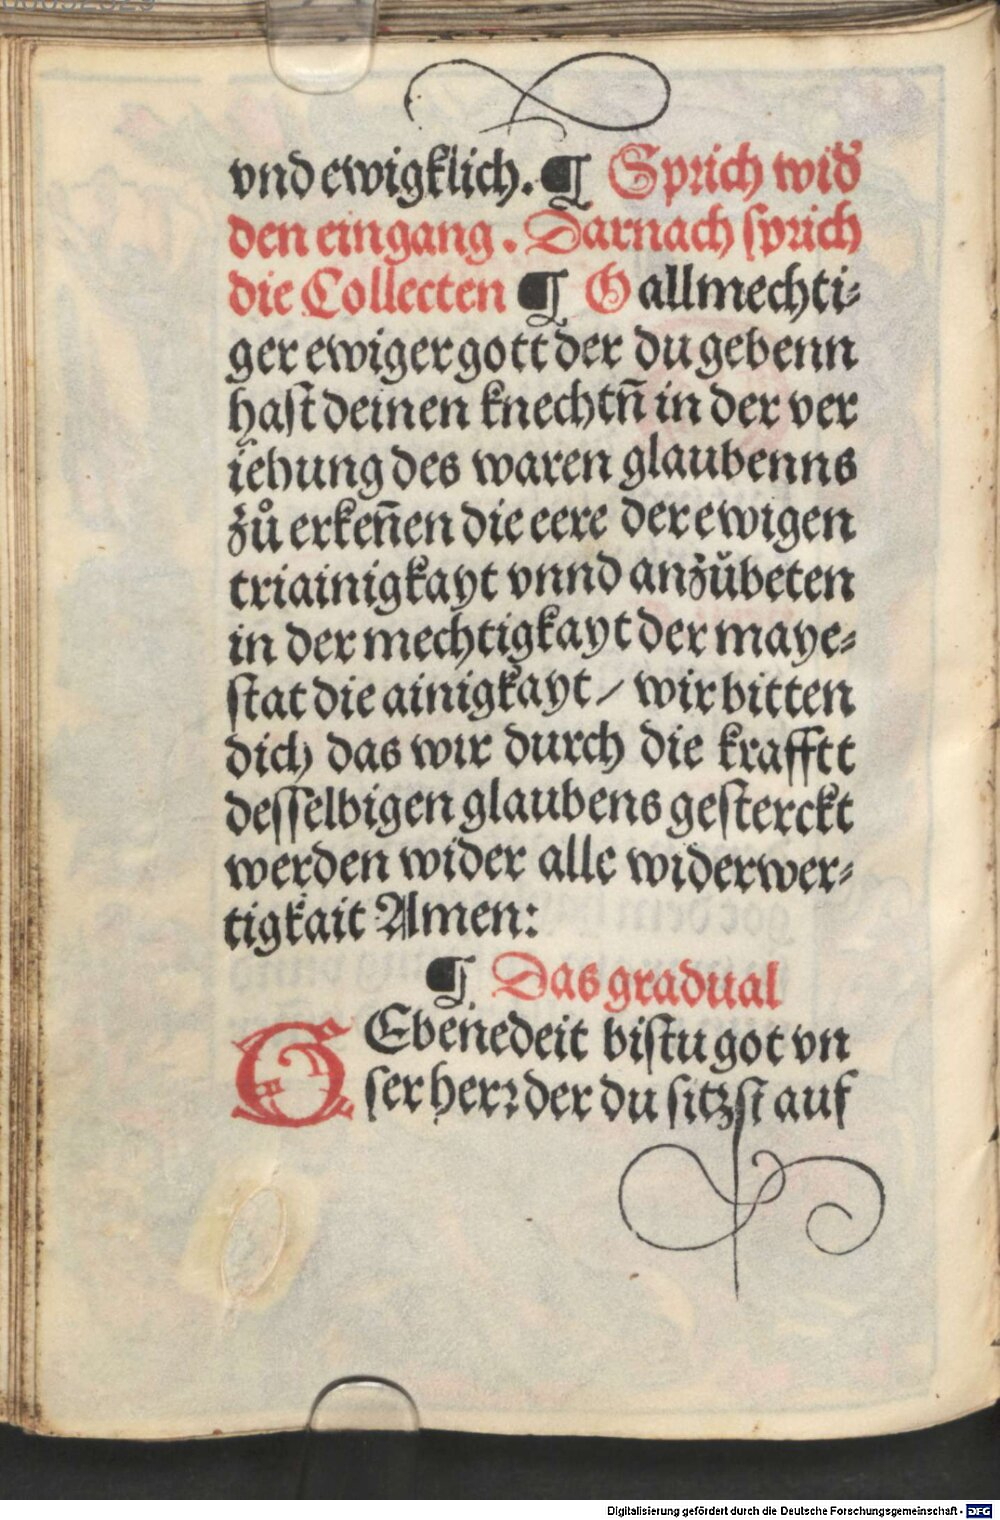 vnd ewigklich. ¶ Sprich wid̕
den eingang. Darnach sprich
die Collecten ¶ O allmechti⸗
ger ewiger gott der du gebenn
hast deinen knechtn̄ in der ver
iehung des waren glaubenns
zů erken̄en die eere der ewigen
triainigkayt vnnd anzůbeten
in der mechtigkayt der maye⸗
stat die ainigkayt / wir bitten
dich das wir durch die krafftt
desselbigen glaubens gesterckt
werden wider alle widerwer⸗
tigkait Amen:
¶ Das gradual
GEbenedeit bistu got vn
ser herꝛ der du sitzst auf
Digitalisierung gefördert durch die Deutsche Forschungsgemeinschaft - DFG